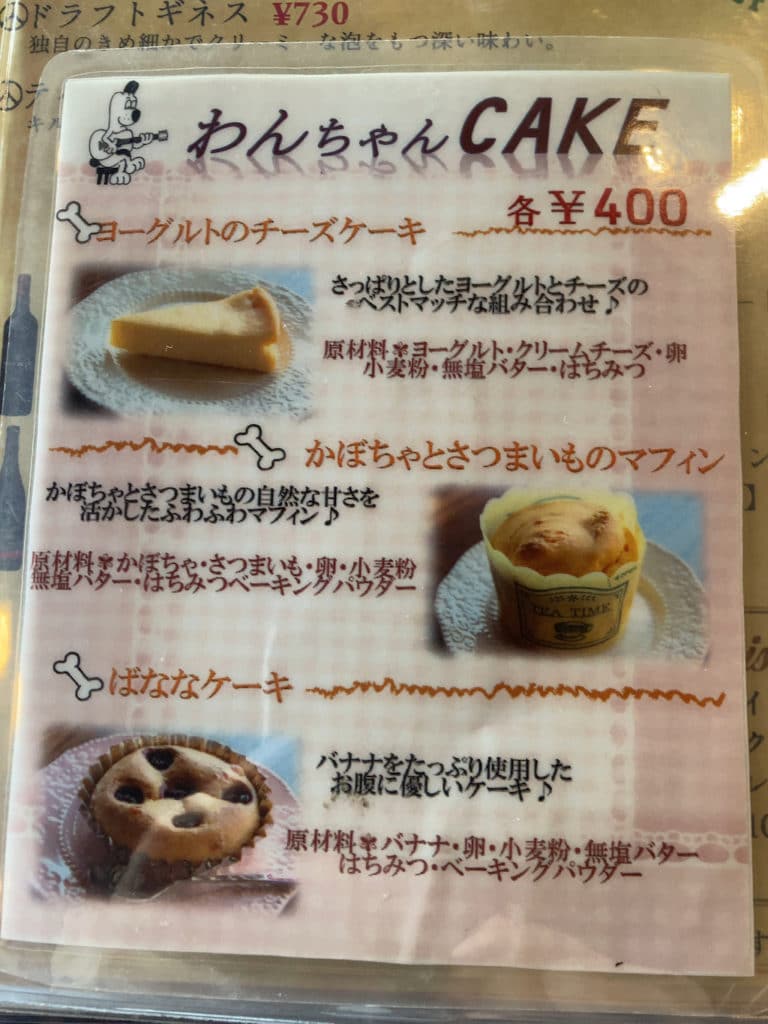 ドラフトギネス ¥730
独自のきめ細かでクリーミーな泡をもつ深い味わい。
わんちゃんCAKE
各¥400
ヨーグルトのチーズケーキ
さっぱりとしたヨーグルトとチーズの
ベストマッチな組み合わせ♪
原材料✾ヨーグルト・クリームチーズ・卵
小麦粉・無塩バター・はちみつ
かぼちゃとさつまいものマフィン
かぼちゃとさつまいもの自然な甘さを
活かしたふわふわマフィン♪
原材料✾かぼちゃ・さつまいも・卵・小麦粉
無塩バター・はちみつベーキングパウダー
TEA TIME
ばななケーキ
バナナをたっぷり使用した
お腹に優しいケーキ♪
原材料✾バナナ・卵・小麦粉・無塩バター
はちみつ・ベーキングパウダー